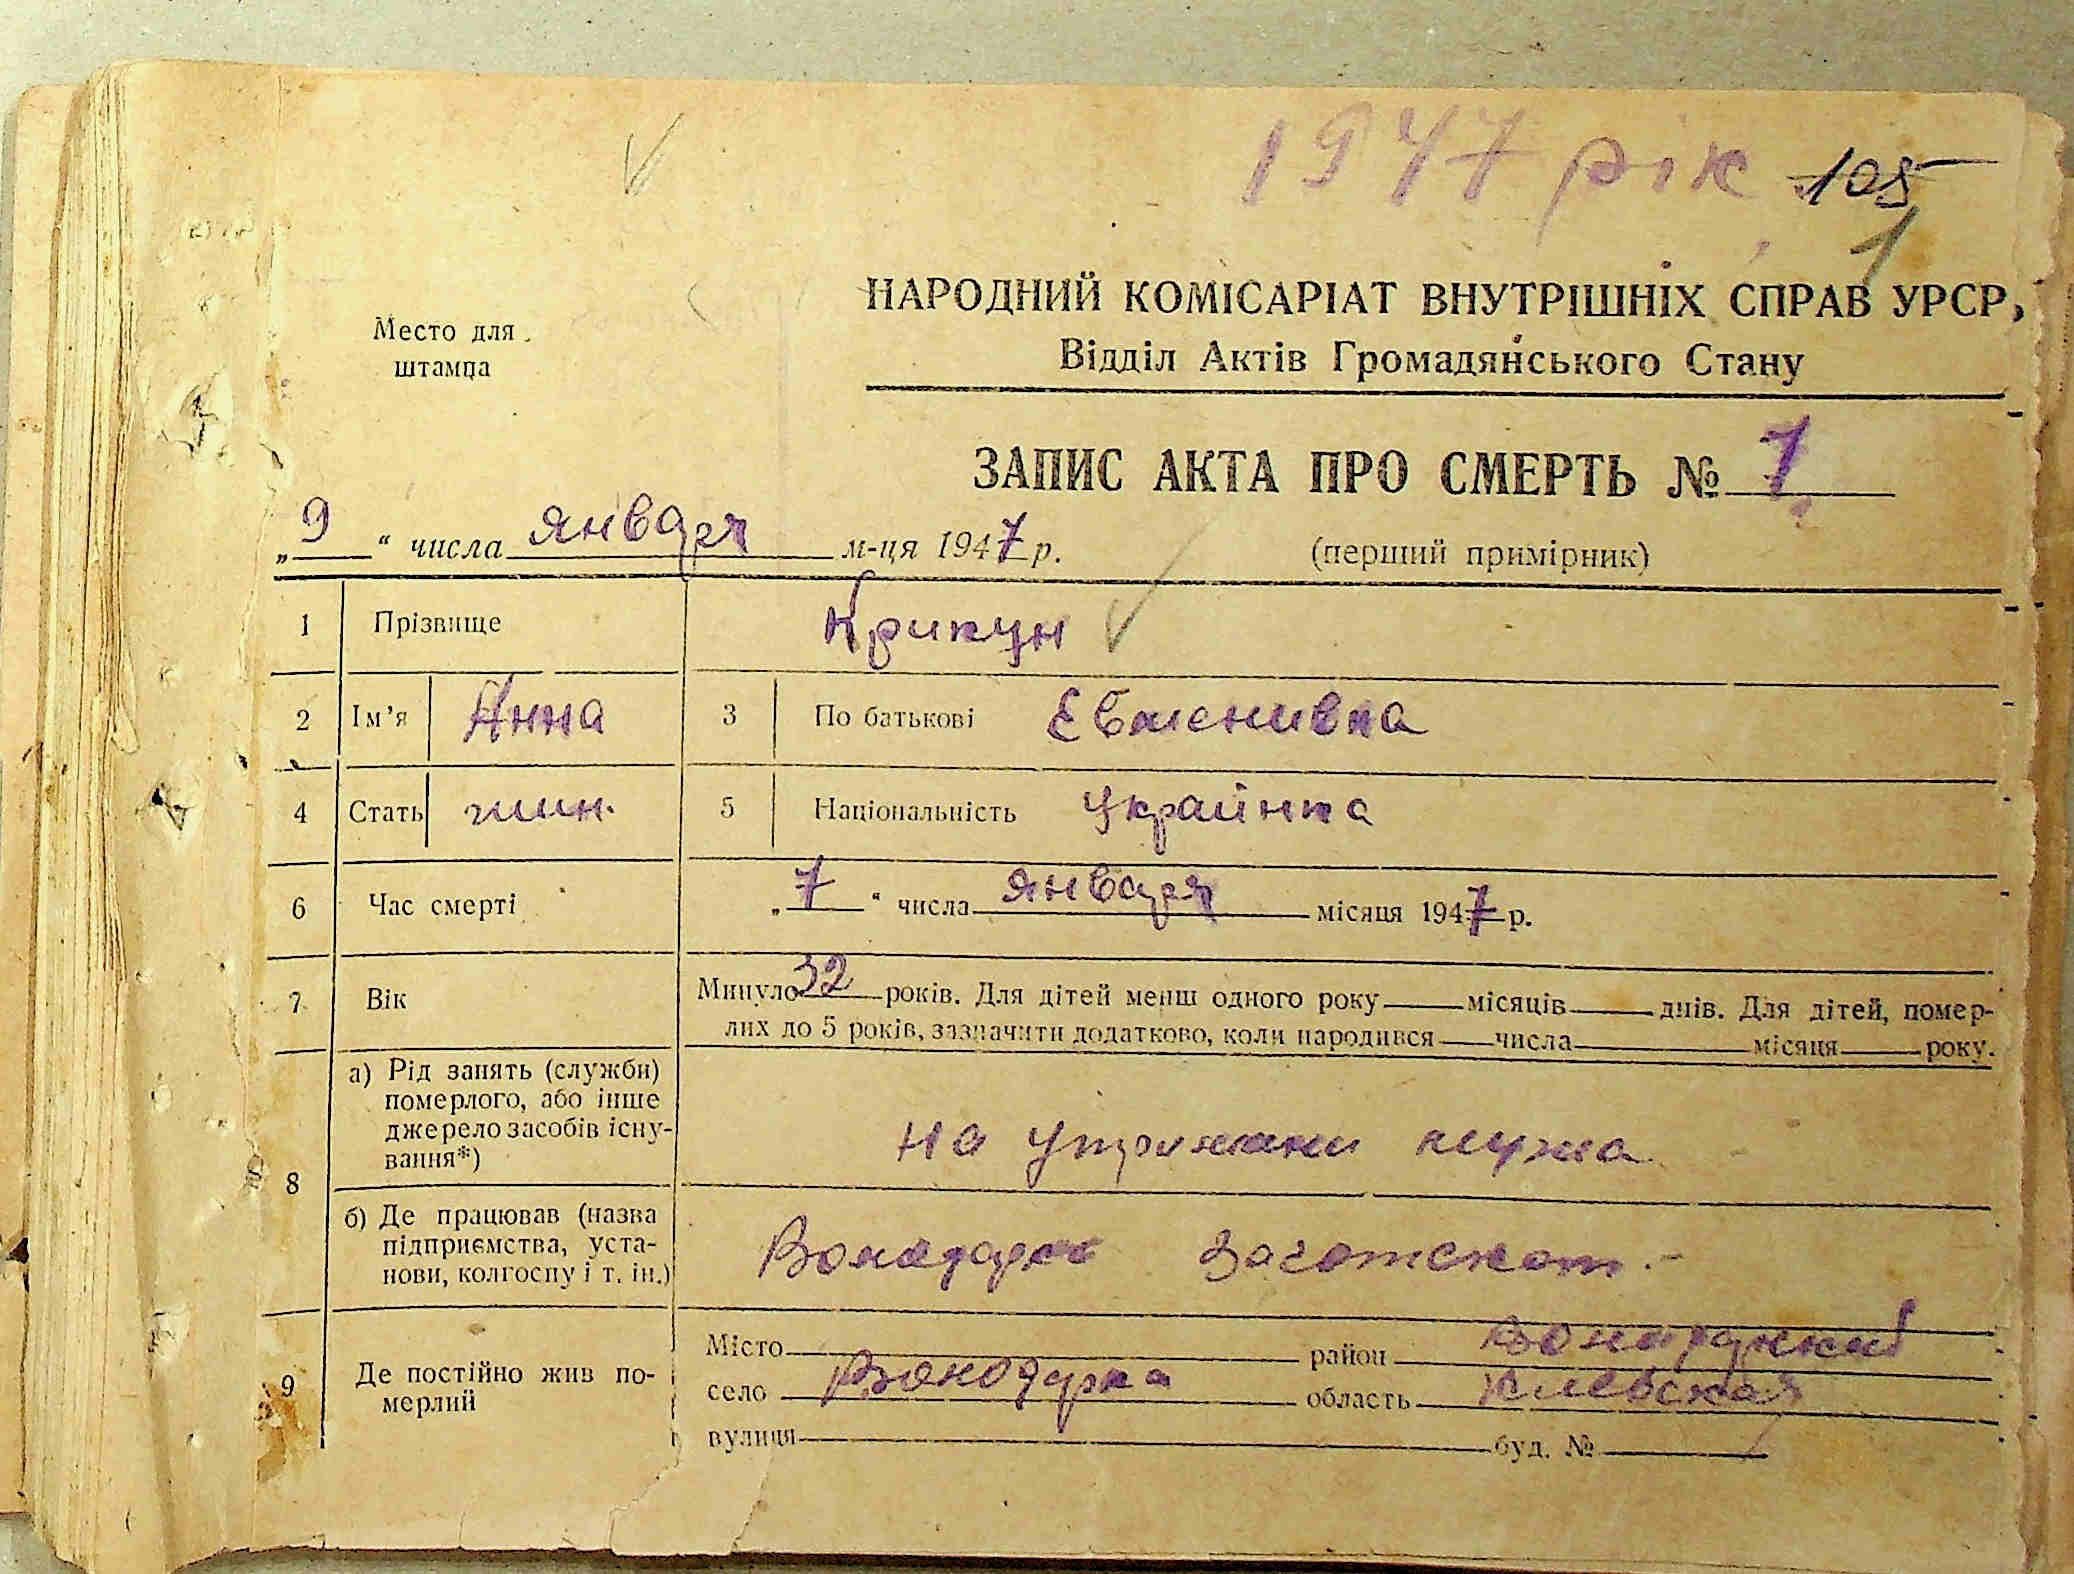 1947 рік 105
1
Место для
штампа
НАРОДНИЙ КОМІСАРІАТ ВНУТРІШНІХ СПРАВ УРСР,
Відділ Актів Громадянського Стану
ЗАПИС АКТА ПРО СМЕРТЬ № 1.
„9“ числа января м-ця 1947 р. (перший примірник)
1 Прізвище Крикун
2 Ім’я Анна 3 По батькові Евменивна
4 Стать жин. 5 Національність Украинка
6 Час смерті „7“ числа января місяця 1947 р.
7 Вік Минуло 32 років. Для дітей менш одного року місяців днів. Для дітей, помер-
лих до 5 років, зазначити додатково, коли народився числа місяця року.
8 а) Рід занять (служби)
померлого, або інше
джерело засобів існу-
вання*)
на утримани мужа
б) Де працював (назва
підприємства, уста-
нови, колгоспу і т. ін.)
Заготскот.-
9 Де постійно жив по-
мерлий
Місто район
село область Киевская
вулиця буд. №